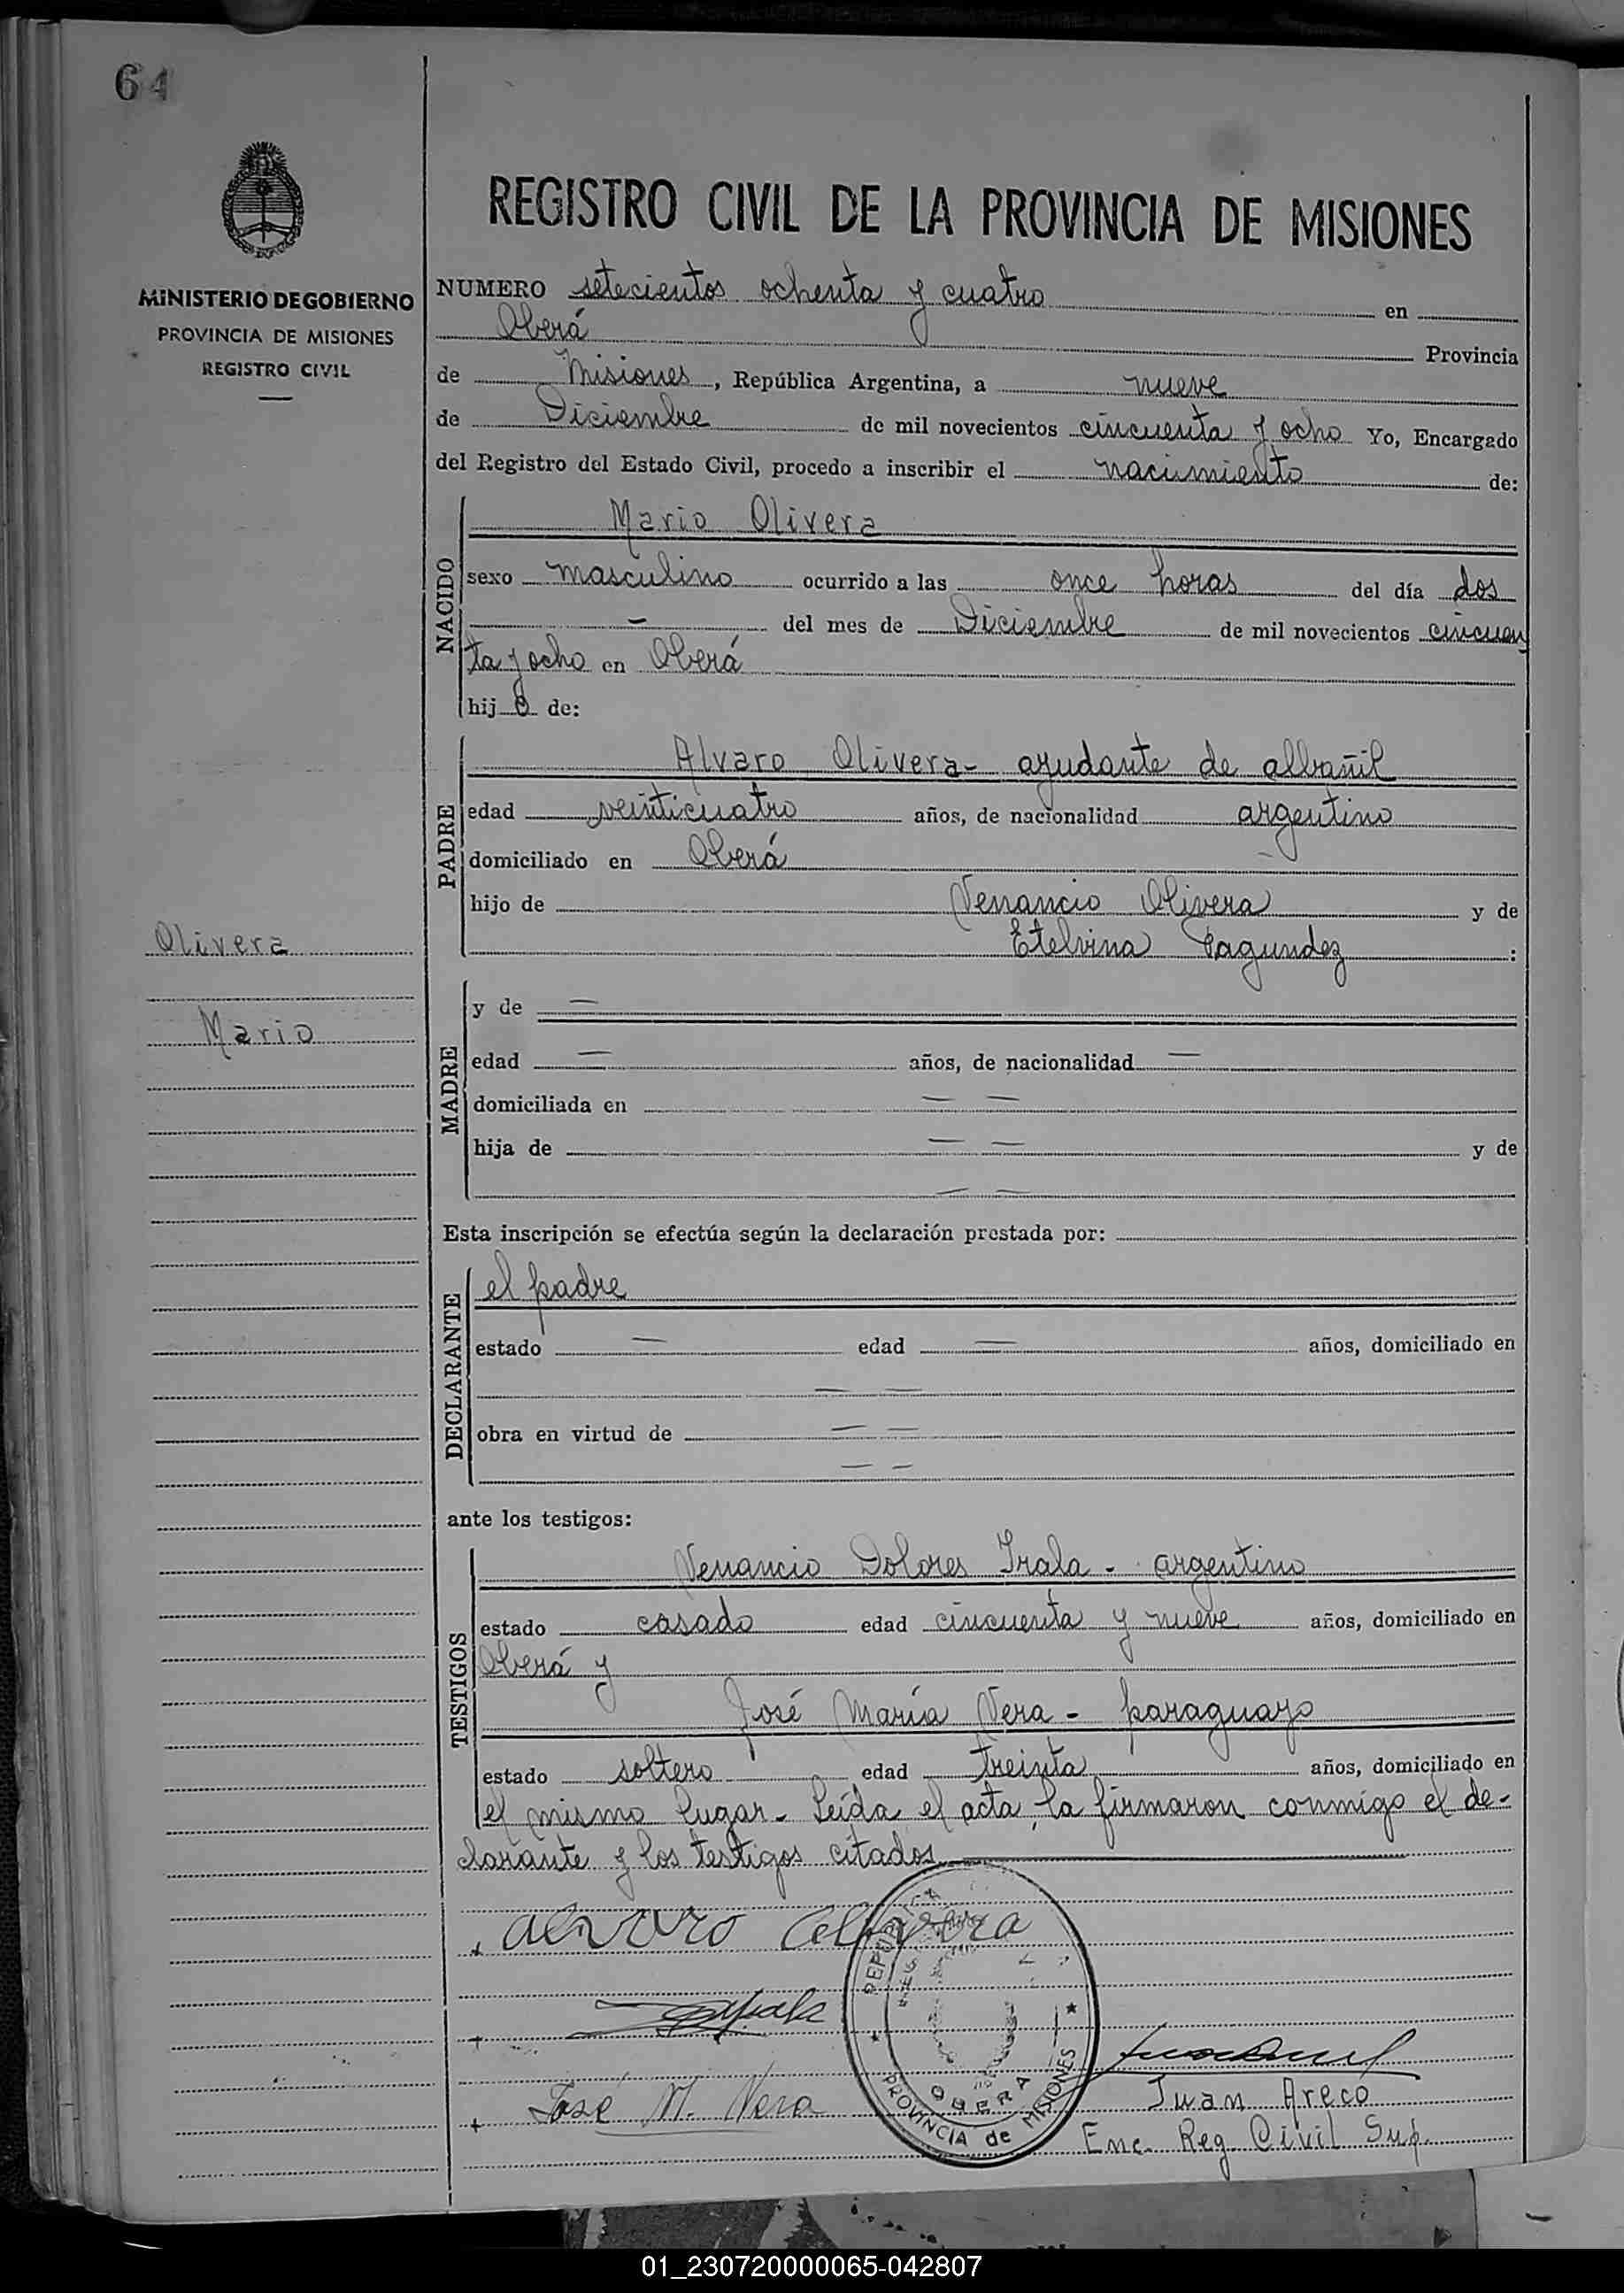 64
REGISTRO CIVIL DE LA PROVINCIA DE MISIONES
MINISTERIO DE GOBIERNO
PROVINCIA DE MISIONES
REGISTRO CIVIL
NUMERO setecientos ochenta y cuatro en
Oberá Provincia
de Misiones, República Argentina, a nueve
de Diciembre de mil novecientos cincuenta y ocho Yo, Encargado
del Registro del Estado Civil, procedo a inscribir el nacimiento de:
NACIDO
Mario Olivera
sexo masculino ocurrido a las once horas del día dos
— del mes de Diciembre de mil novecientos cincuen
ta y ocho en Oberá
hijo de:
PADRE
Alvaro Olivera - ayudante de albañil
edad veinticuatro años, de nacionalidad argentino
domiciliado en Oberá
hijo de Venancio Olivera y de
Etelvina Fagundez :
Olivera
Mario
MADRE
y de —
edad — años, de nacionalidad —
domiciliada en — —
hija de — — y de
— —
Esta inscripción se efectúa según la declaración prestada por:
DECLARANTE
el padre
estado — edad — años, domiciliado en
— —
obra en virtud de — —
— —
ante los testigos:
TESTIGOS
Venancio Dolores Irala - argentino
estado casado edad cincuenta y nueve años, domiciliado en
Oberá y
José María Vera - paraguayo
estado soltero edad treinta años, domiciliado en
el mismo lugar - Leída el acta, la firmaron conmigo el de-
clarante y los testigos citados
Alvaro Olivera
José M. Vera
REPUBLICA
OBERA
PROVINCIA de MISIONES
Juan Areco
Enc. Reg. Civil Sup.
01_230720000065-042807